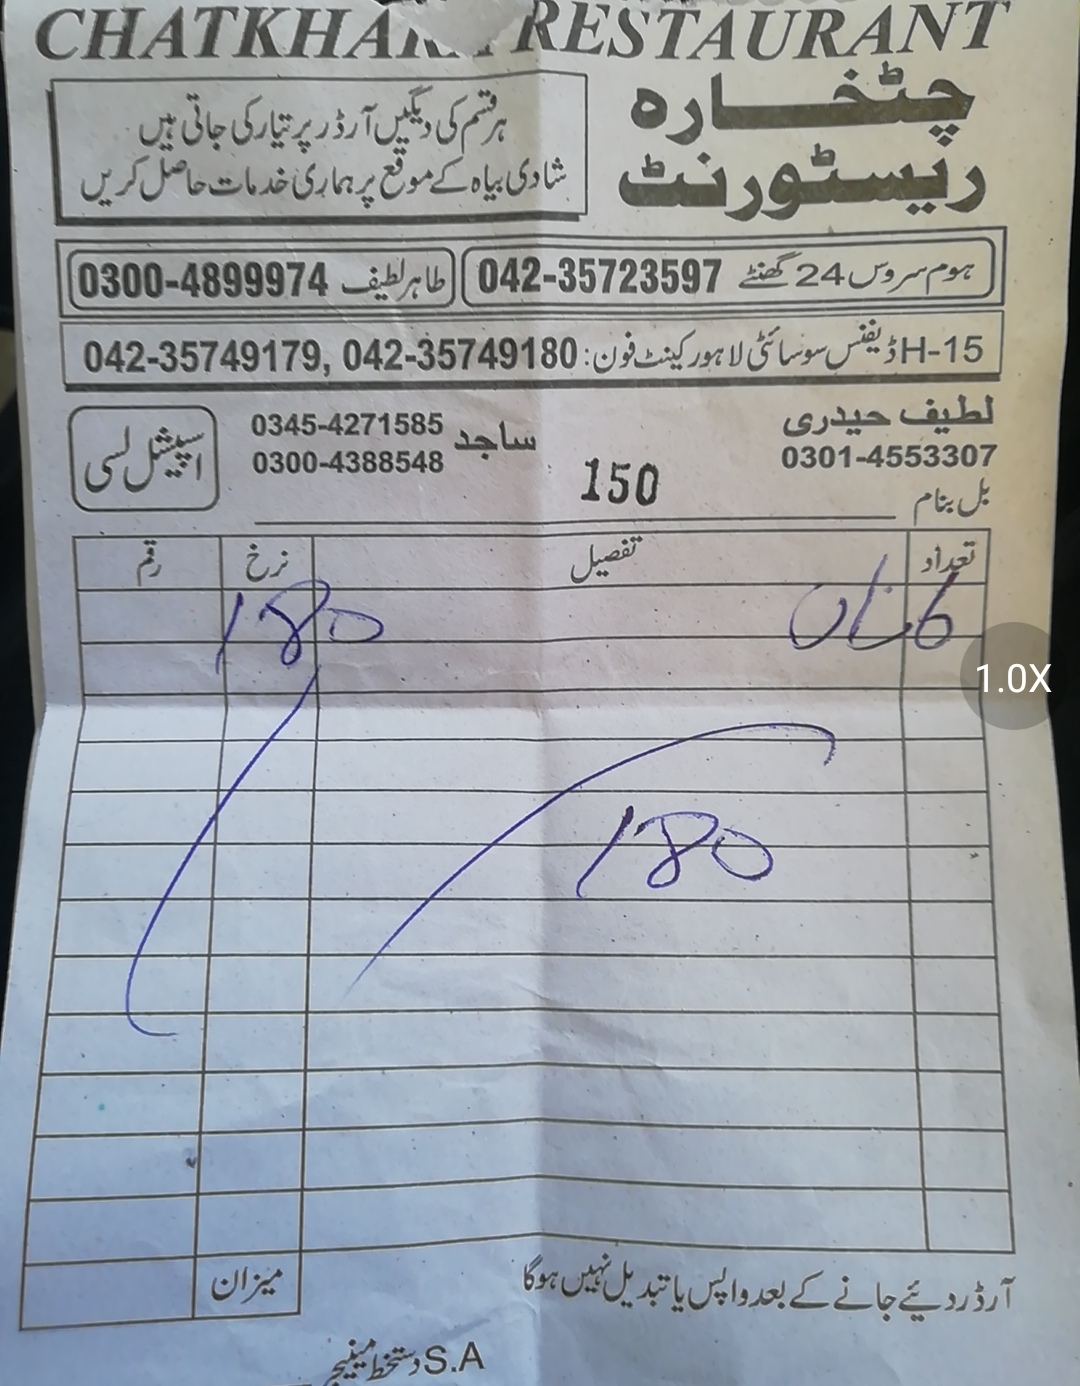 CHATKHARA RESTAURANT
چٹخارہ
ریسٹورنٹ
ہر قسم کی دیگیں آرڈر پر تیار کی جاتی ہیں
شادی بیاہ کے موقع پر ہماری خدمات حاصل کریں
ہوم سروس 24 گھنٹے 042-35723597
طاہر لطیف 0300-4899974
15-H ڈیفنس سوسائٹی لاہور کینٹ فون: 042-35749179, 042-35749180
لطیف حیدری
0301-4553307
ساجد 0345-4271585
0300-4388548
اسپیشل لسی
150
بل بنام
تعداد تفصیل نرخ رقم
6 نان 180
180
میزان
آرڈر دئیے جانے کے بعد واپس یا تبدیل نہیں ہوگا
S.A دستخط مینیجر
1.0X